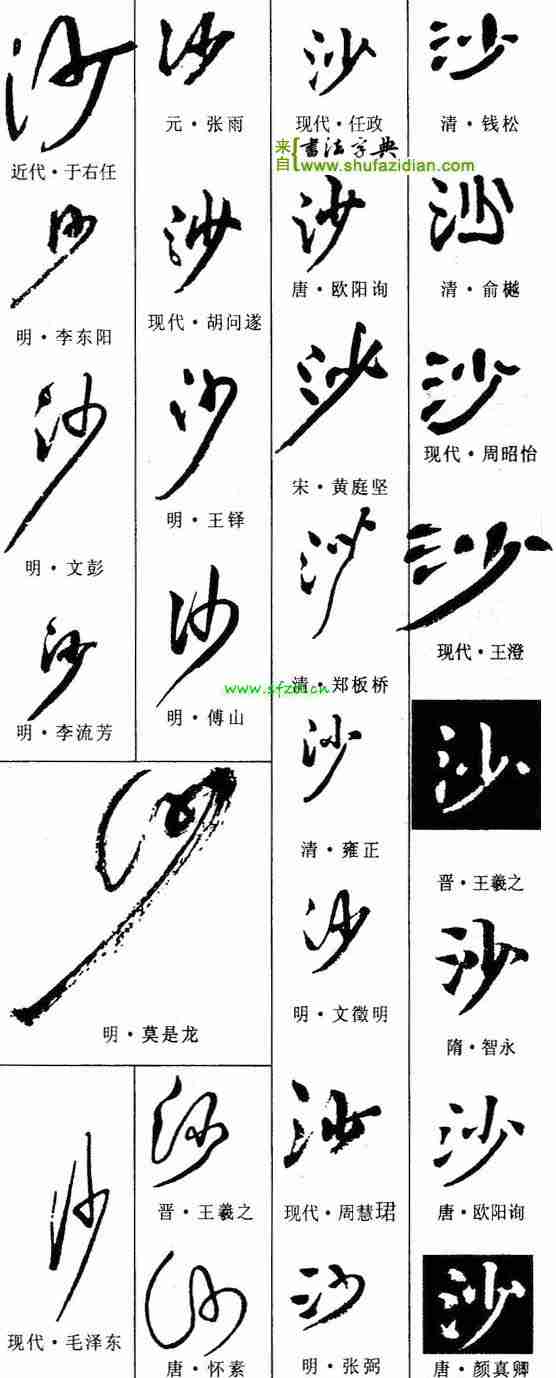 沙
近代·于右任
沙
明·李东阳
沙
明·文彭
沙
明·李流芳
沙
元·张雨
沙
现代·胡问遂
沙
明·王铎
沙
明·傅山
www.sfzd.cn
沙
明·莫是龙
沙
现代·毛泽东
沙
晋·王羲之
沙
唐·怀素
沙
现代·任政
来自{书法字典
www.shufazidian.com
沙
唐·欧阳询
沙
宋·黄庭坚
沙
清·郑板桥
沙
清·雍正
沙
明·文徵明
沙
现代·周慧珺
沙
明·张弼
沙
清·钱松
沙
清·俞樾
沙
现代·周昭怡
沙
现代·王澄
沙
晋·王羲之
沙
隋·智永
沙
唐·欧阳询
沙
唐·颜真卿